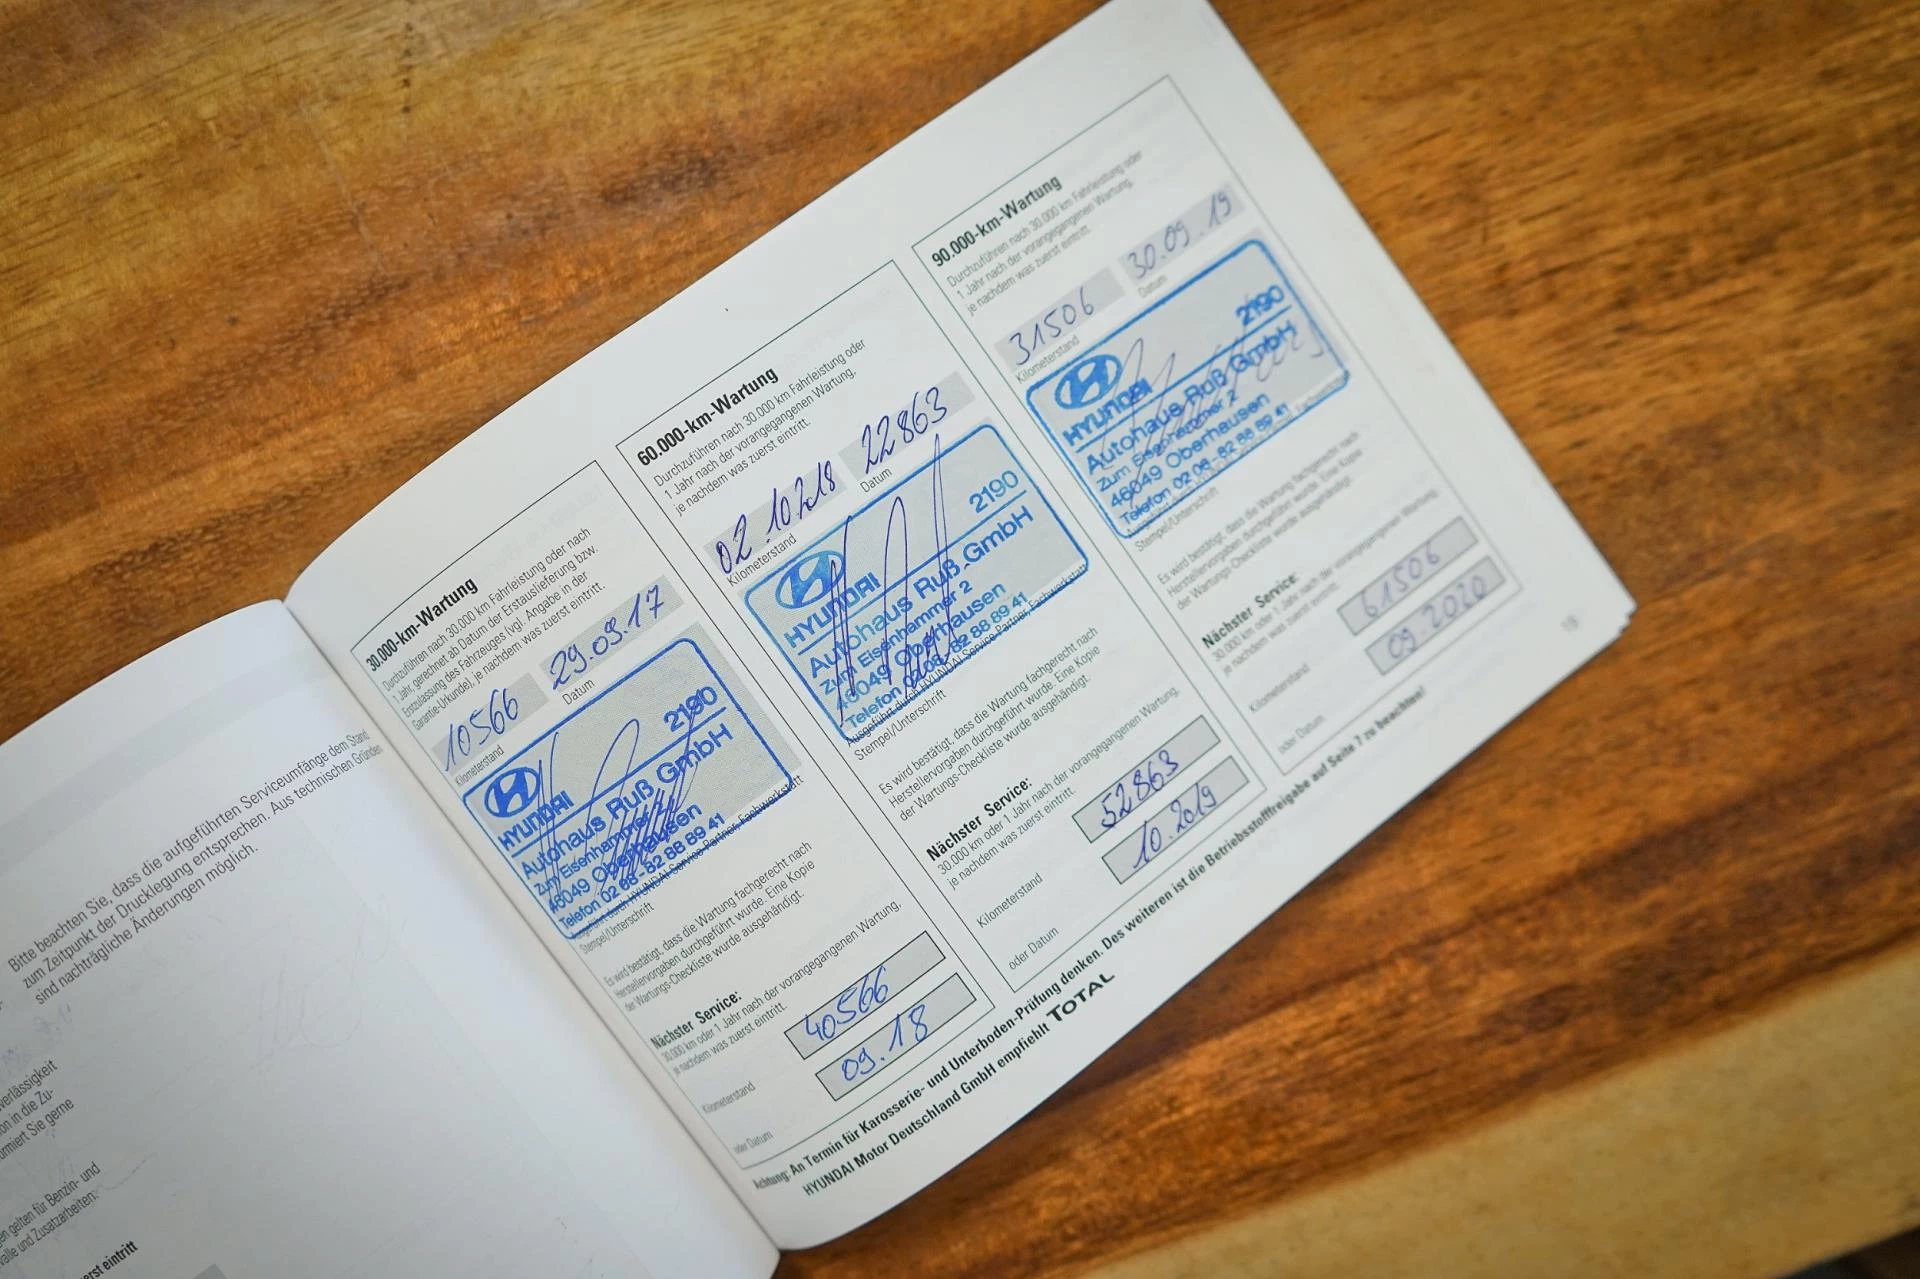 Bitte beachten Sie, dass die aufgeführten Serviceumfänge dem Stand
zum Zeitpunkt der Drucklegung entsprechen. Aus technischen Gründen
sind nachträgliche Änderungen möglich.
verlässigkeit
on in die Zu-
ormiert Sie gerne
gelten für Benzin- und
und Zusatzarbeiten:
erst eintritt
30.000-km-Wartung
Durchzuführen nach 30.000 km Fahrleistung oder nach
1 Jahr, gerechnet ab Datum der Erstauslieferung bzw.
Erstzulassung des Fahrzeuges (vgl. Angabe in der
Garantie-Urkunde), je nachdem was zuerst eintritt.
10566 29.09.17
Kilometerstand Datum
2190
HYUNDAI
Autohaus Ruß GmbH
Zum Eisenhammer 2
46049 Oberhausen
Telefon 02 08 - 82 88 89 41
Ausgeführt durch HYUNDAI Service Partner, Fachwerkstatt
Stempel/Unterschrift
Es wird bestätigt, dass die Wartung fachgerecht nach
Herstellervorgaben durchgeführt wurde. Eine Kopie
der Wartungs-Checkliste wurde ausgehändigt.
Nächster Service:
30.000 km oder 1 Jahr nach der vorangegangenen Wartung,
je nachdem was zuerst eintritt.
Kilometerstand 40566
oder Datum 09.18
60.000-km-Wartung
Durchzuführen nach 30.000 km Fahrleistung oder
1 Jahr nach der vorangegangenen Wartung,
je nachdem was zuerst eintritt.
02.10.2018 22863
Kilometerstand Datum
2190
HYUNDAI
Autohaus Ruß GmbH
Zum Eisenhammer 2
46049 Oberhausen
Telefon 02 08 - 82 88 89 41
Ausgeführt durch HYUNDAI Service Partner, Fachwerkstatt
Stempel/Unterschrift
Es wird bestätigt, dass die Wartung fachgerecht nach
Herstellervorgaben durchgeführt wurde. Eine Kopie
der Wartungs-Checkliste wurde ausgehändigt.
Nächster Service:
30.000 km oder 1 Jahr nach der vorangegangenen Wartung,
je nachdem was zuerst eintritt.
Kilometerstand 52863
oder Datum 10.2019
90.000-km-Wartung
Durchzuführen nach 30.000 km Fahrleistung oder
1 Jahr nach der vorangegangenen Wartung,
je nachdem was zuerst eintritt.
31506 30.09.19
Kilometerstand Datum
2190
HYUNDAI
Autohaus Ruß GmbH
Zum Eisenhammer 2
46049 Oberhausen
Telefon 02 08 - 82 88 89 41
Stempel/Unterschrift
Es wird bestätigt, dass die Wartung fachgerecht nach
Herstellervorgaben durchgeführt wurde. Eine Kopie
der Wartungs-Checkliste wurde ausgehändigt.
Nächster Service:
30.000 km oder 1 Jahr nach der vorangegangenen Wartung,
je nachdem was zuerst eintritt.
Kilometerstand 61506
oder Datum 09.2020
Achtung: An Termin für Karosserie- und Unterboden-Prüfung denken. Des weiteren ist die Betriebsstofffreigabe auf Seite 7 zu beachten!
HYUNDAI Motor Deutschland GmbH empfiehlt TOTAL
19